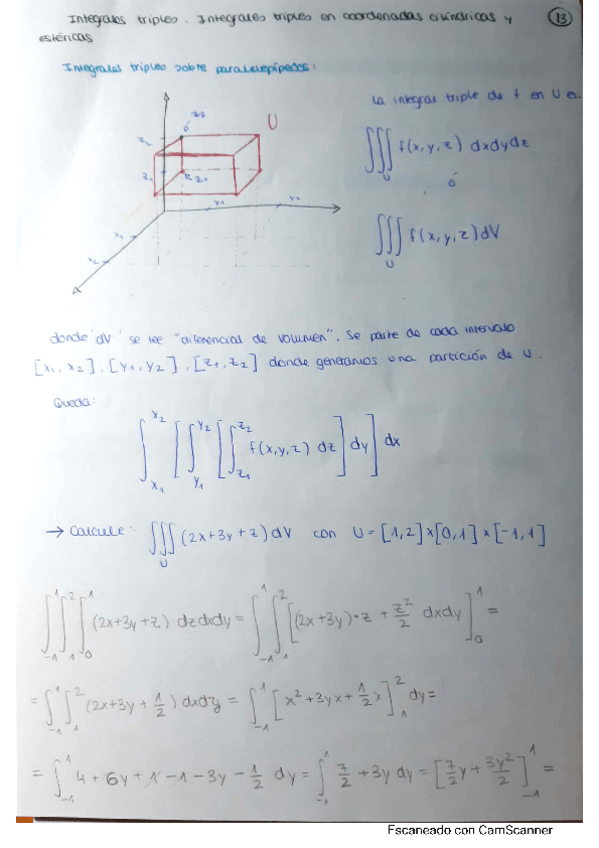 Integrales triples. Integrales triples en coordenadas cilíndricas y
esféricas
13
Integrales triples sobre paralelepípedos:
La integral triple de f en U es
∭_U f(x,y,z) dxdydz
ó
∭_U f(x,y,z)dV
U
z2
z1
y1
y2
x1
x2
donde 'dV' se lee "diferencial de volumen". Se parte de cada intervalo
[x1, x2], [y1, y2], [z1, z2] donde generamos una partición de U.
Queda:
∫_{x1}^{x2} [ ∫_{y1}^{y2} [ ∫_{z1}^{z2} f(x,y,z) dz ] dy ] dx
→ Calcule: ∭_U (2x+3y+z)dV con U=[1,2]×[0,1]×[-1,1]
∫_{-1}^{1} ∫_{1}^{2} ∫_{0}^{1} (2x+3y+z) dzdxdy = ∫_{-1}^{1} ∫_{-1}^{2} [(2x+3y)·z + z²/2 dxdy]_{0}^{1} =
= ∫_{-1}^{1} ∫_{1}^{2} (2x+3y+1/2) dxdy = ∫_{-1}^{1} [x²+3yx+1/2x]_{1}^{2} dy =
= ∫_{-1}^{1} 4+6y+1-1-3y-1/2 dy = ∫_{-1}^{1} 7/2+3y dy = [7/2y + 3y²/2]_{-1}^{1} =
Escaneado con CamScanner